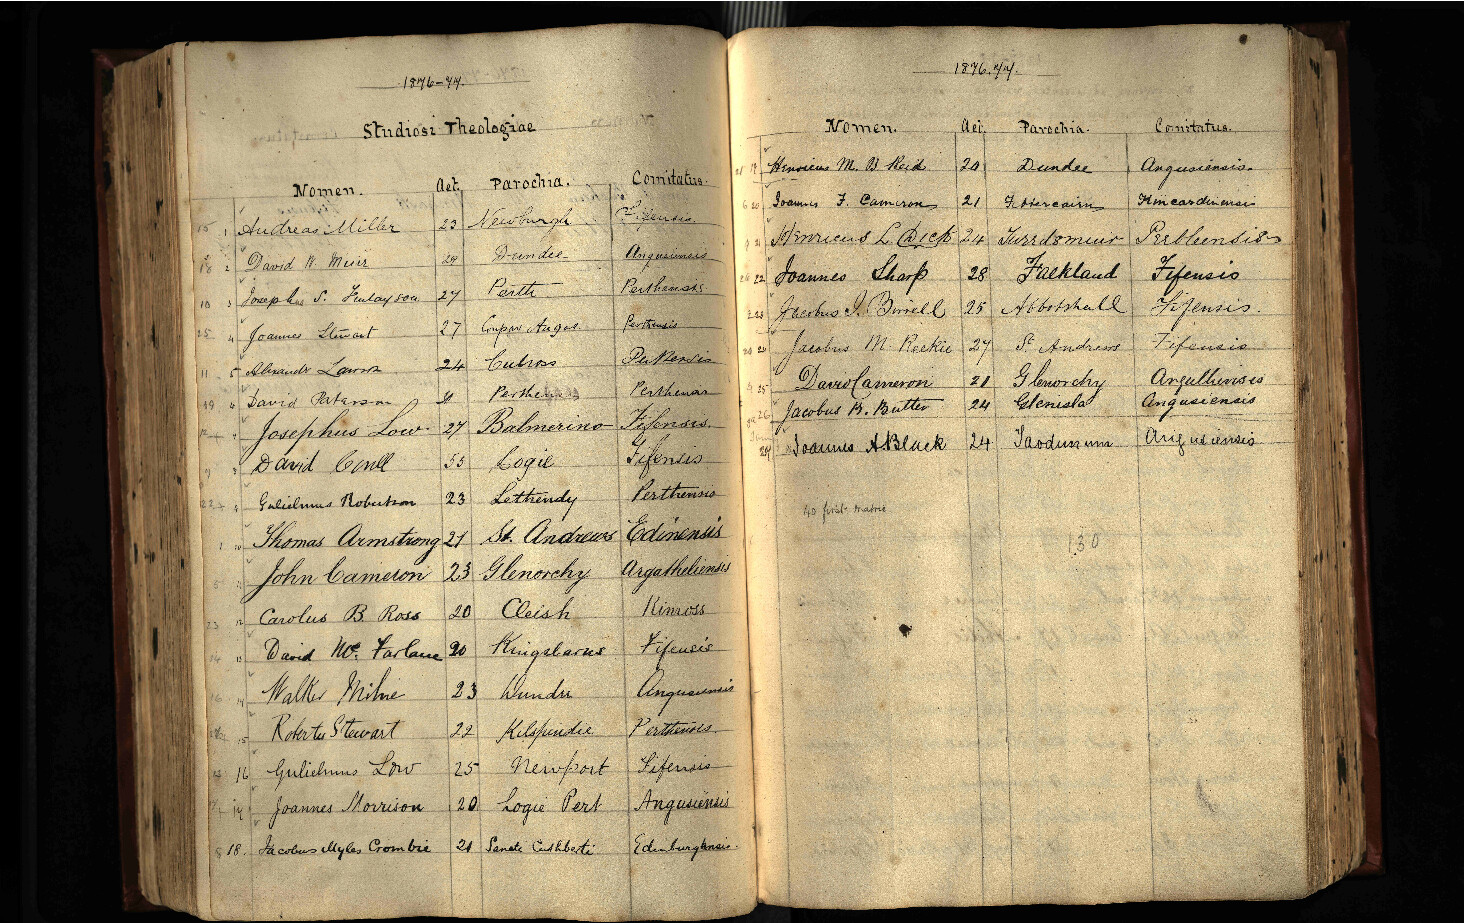 1876-77.
Studiosi Theologiae
Nomen. Aet. Parochia. Comitatus.
15 1 Andreas Miller 23 Newburgh Fifensis
18 2 David W. Muir Dundee Angusiensis
10 3 Josephus S. Finlayson 27 Perth Perthensis
25 4 Joannes Stewart 27 Coupar Angus Perthensis
11 5 24 Culross Perthensis
David Paterson 21 Perthensis
Josephus Low 27 Balmerino Fifensis
9 8 David Coull 55 Logie Fifensis
22 9 Gulielmus Robertson 23 Lethendy Perthensis
1 10 Thomas Armstrong 21 St. Andrews Edinensis
5 11 John Cameron 23 Glenorchy Argatheliensis
23 12 Carolus B. Ross 20 Cleish Kinross
14 13 David Mc. Farlane 20 Kingsbarns Fifensis
16 14 Walker Milne 23 Dundee Angusiensis
15 Robertus Stewart 22 Kilspindie Perthensis
13 16 Gulielmus Low 25 Newport Fifensis
17 17 Joannes Morrison 20 Logie Pert Angusiensis
8 18. Jacobus Myles Crombie 21 Sancti Cuthberti Edinburgensis.
1876.77.
Nomen. Aet. Parochia. Comitatus.
21 19 Henricus M. B Reid 20 Dundee Angusiensis.
6 20 Joannes F. Cameron 21 Fettercairn Kincardinensis
21 Henricus L Dick 24 Perthensis
26 22 Joannes Sharp 28 Falkland Fifensis
2 23 Jacobus J. Birrell 25 Abbotshall Fifensis.
20 24 Jacobus M Reekie 27 St Andrews Fifensis
4 25 David Cameron 21 Glenorchy Argathensis
26 Jacobus B. Butter 24 Glenisla Angusiensis
27 Joannes A. Black 24 Taodunum Angusiensis
40 first matric
130